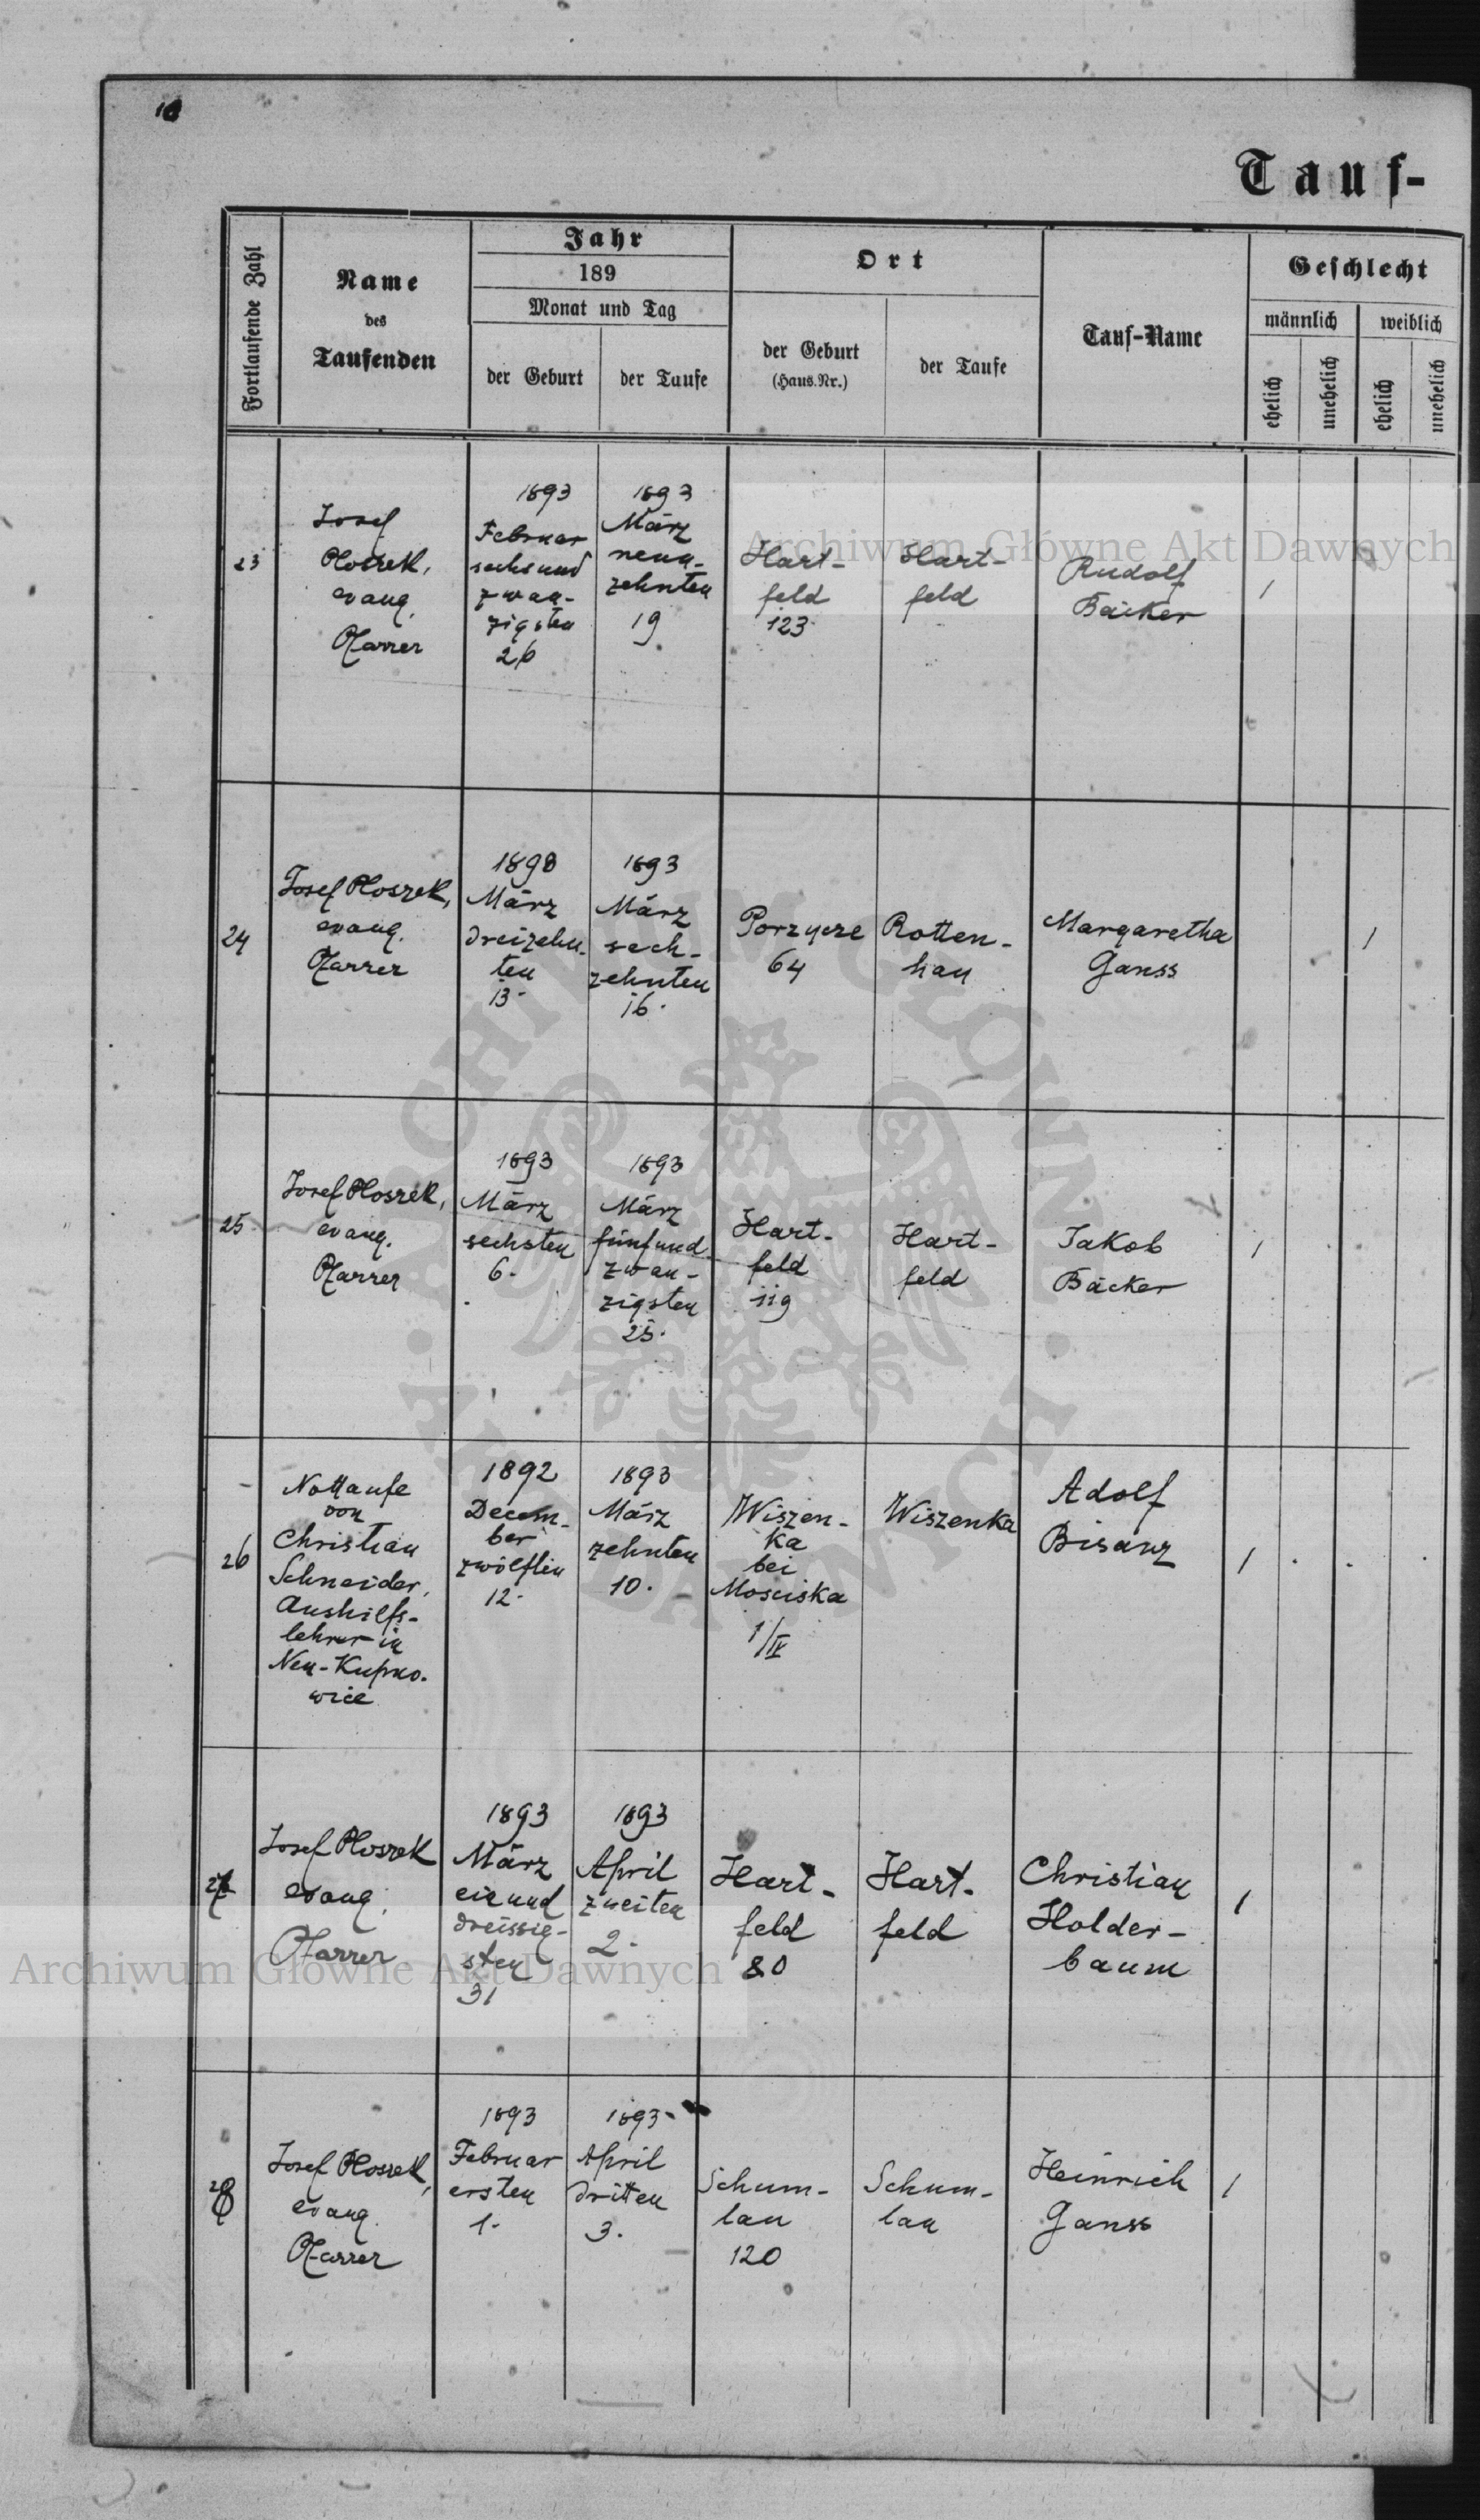 Tauf-
Fortlaufende Zahl
Name
des
Taufenden
Jahr
189
Monat und Tag
der Geburt
der Taufe
Ort
der Geburt
(Haus.Nr.)
der Taufe
Tauf-Name
Geschlecht
männlich
weiblich
ehelich
unehelich
ehelich
unehelich
23
Josef
Ploszek,
evang.
Pfarrer
1893
Februar
sechsund
zwan-
zigsten
26
1893
März
neun-
zehnten
19
Hart-
feld
123
Hart-
feld
Rudolf
Bäcker
1
24
Josef Ploszek,
evang.
Pfarrer
März
dreizehn-
ten
13.
1893
März
sech-
zehnten
16.
Porzycze
64
Rotten-
han
Margaretha
Ganss
1
25
Josef Ploszek,
evang.
Pfarrer
1893
März
sechsten
6.
1893
März
fünfund
zwan-
zigsten
25.
Hart-
feld
119
Hart-
feld
Jakob
Bäcker
1
26
Nottaufe
von
Christian
Schneider,
Aushilfs-
lehrer in
Neu-Kupno-
wice
1892
Decem-
ber
zwölften
12.
1893
März
zehnten
10.
Wiszen-
ka
bei
Mosciska
1/IV
Wiszenka
Adolf
Bisanz
1
27
Josef Ploszek
evang.
Pfarrer
1893
März
einund
dreissig-
sten
31
1893
April
zweiten
2.
Hart-
feld
80
Hart-
feld
Christian
Holder-
baum
1
28
Josef Ploszek,
evang.
Pfarrer
1893
Februar
ersten
1.
1893
April
dritten
3.
Schum-
lau
120
Schum-
lau
Heinrich
Ganss
1
Archiwum Główne Akt Dawnych
Archiwum Główne Akt Dawnych
ARCHIWUM GŁÓWNE
AKT DAWNYCH